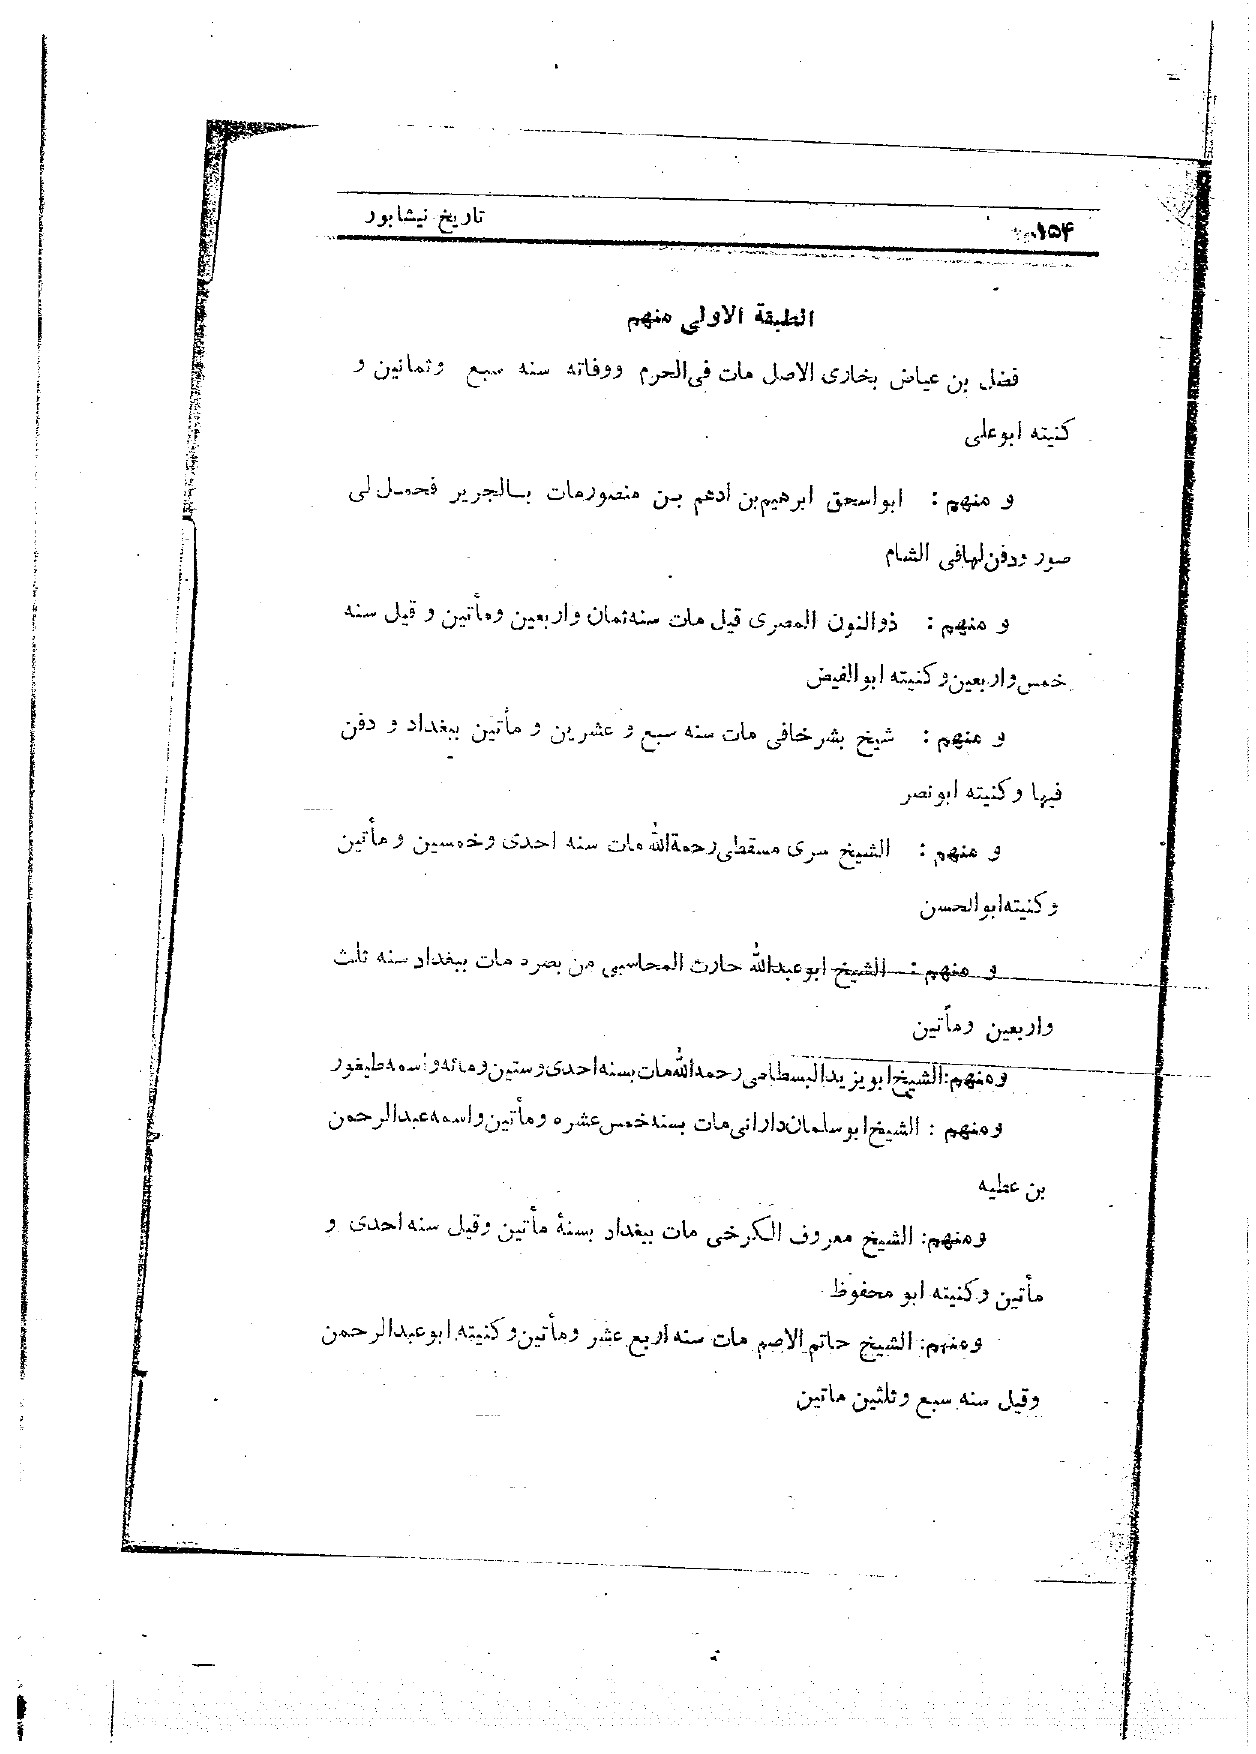 ۱۵۴
تاریخ نیشابور
الطبقة الاولی منهم
فضل بن عیاض بخاری الاصل مات فی‌الحرم ووفاته سنه سبع وثمانین و
کنیته ابوعلی
و منهم : ابواسحق ابرهیم‌بن ادهم بن منصورمات بالجریر فحمل لی
صور ودفن‌لهافی الشام
و منهم : ذوالنون المصری قیل مات سنه‌ثمان واربعین ومأتین و قیل سنه
خمس‌واربعین‌وکنیته ابوالفیض
و منهم : شیخ بشرخافی مات سنه سبع و عشرین و مأتین ببغداد و دفن
فیها وکنیته ابونصر
و منهم : الشیخ سری مسقطی‌رحمةالله‌مات سنه احدی وخمسین ومأتین
وکنیته‌ابوالحسن
و منهم : الشیخ ابوعبدالله حارث المحاسبی من بصره مات ببغداد سنه ثلث
واربعین ومأتین
ومنهم:الشیخ‌ابویزیدالبسطامی‌رحمه‌الله‌مات‌بسنه‌احدی‌وستین‌ومائه‌واسمه‌طیفور
ومنهم : الشیخ‌ابوسلمان‌دارانی‌مات بسنه‌خمس‌عشره ومأتین‌واسمه‌عبدالرحمن
بن عطیه
ومنهم: الشیخ معروف الکرخی مات ببغداد بسنۀ مأتین وقیل سنه‌احدی و
مأتین وکنیته ابو محفوظ
ومنهم: الشیخ حاتم‌الاصم مات سنه‌اربع‌عشر ومأتین‌وکنیته‌ابوعبدالرحمن
وقیل سنه سبع وثلثین ماتین